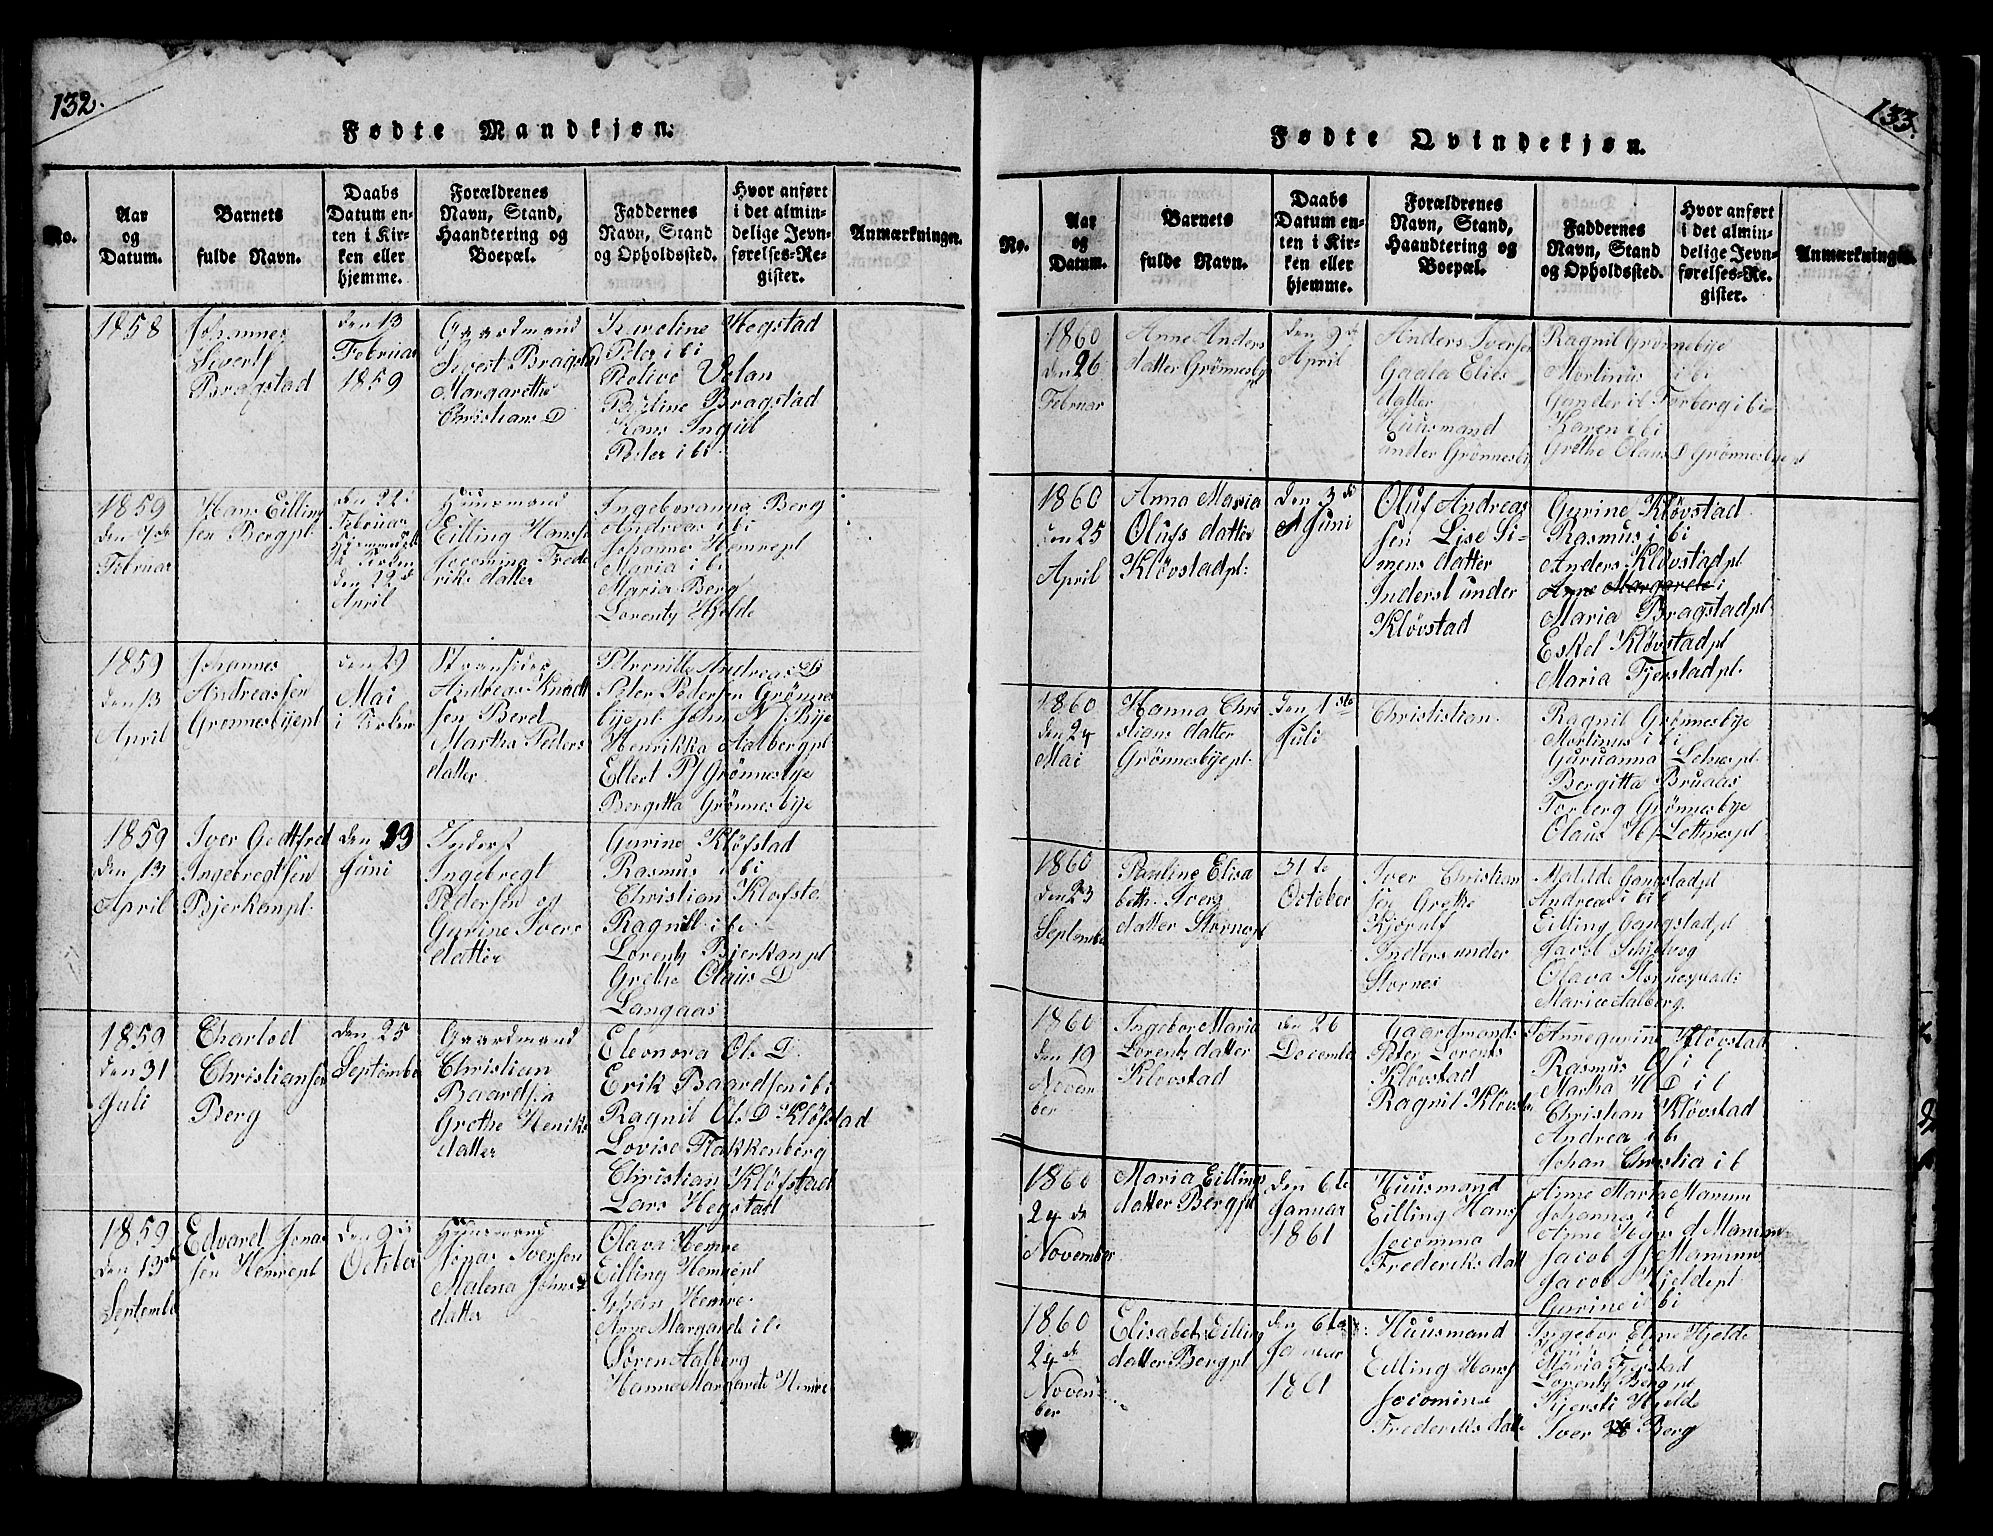 132.
Fødte Mandkjøn.
No.
Aar
og
Datum.
Barnets
fulde Navn.
Daabs
Datum en-
ten i Kir-
ken eller
hjemme.
Forældrenes
Navn, Stand,
Haandtering og
Boepæl.
Faddernes
Navn, Stand
og Opholdssted.
Hvor anført
i det almin-
delige Jevn-
førelses-Re-
gister.
Anmærkninger.
1858
Johannes
Sivertf
Bragstad
den 13
Februar
1859
Gaardmand
Sivert Bragstad
Margarethe
Christians D
Karoline Hegstad
Peter i bi
Petive Volan
Beline Bragstad
Hans Ingul
Peter i bi
1859
den 7de
Februar
Hans Eilling
sen Bergpl.
den 21
Februar
Hjemmedøbt
i Kirken
den 12te
April
Huusmand
Eilling Hansf
Jocomina Frede
riks datter
Ingeboranna Berg
Andreas i bi
Johannes Hemrepl
Maria i bi
Maria Berg
Lorentz Hjelde
1859
den 13
April
Johannes
Andreassen
Grønnesbyepl
den 29
Mai
i Kirken
Strandsider
Andreas Knudt
sen Beret
Martha Peders
datter
Petronille Andreas D
Peter Pedersen Grønnes
byepl. John N. Bye
Henrikka Aalbergpl
Ellert P. Grønnesbye
Bergitta Grønnesbye
1859
den 13
April
Iver Godtfred
Ingebregtsen
Bjerkanpl.
den 19
Juni
Inderst
Ingebregt
Pedersen og
Gurine Ivers
datter
Gurine Kløfstad
Rasmus i bi
Christian Kløfsta.
Ragnill i bi
Lorentz Bjerkanpl
Grethe Olaus D
Langaas
1859
den 31
Juli
Charlod
Christiansen
Berg
den 25
September
Gaardmand
Christian
Baardsen
Grethe Henriks
datter
Eleonora Ols D.
Erik Baardsen i bi
Ragnil Ols D Kløfstad
Lovise Flakkenberg
Christian Kløfstad
Lars Hegstad
1859
den 13de
September
Edvard Jonas
sen Hemrepl
den 9de
October
Huusmand
Jonas Iversen
Malena Johns
datter
Olava Hemre
Eilling Hemrepl
Johan Hemre.
Anne Margarete i bi
Søren Aalberg
Hanne Margarete Hemre
133.
Fødte Qvindekjøn.
No.
Aar
og
Datum.
Barnets
fulde Navn.
Daabs
Datum en-
ten i Kir-
ken eller
hjemme.
Forældrenes
Navn, Stand,
Haandtering og
Boepæl.
Faddernes
Navn, Stand
og Opholdssted.
Hvor anført
i det almin-
delige Jevn-
førelses-Re-
gister.
Anmærkninger.
1860
den 26
Februar
Anne Anders
datter Grønnesby
den 9de
April
Anders Iversen
Gaala Elies
datter
Huusmand
under Grønnesbi
Ragnil Grønnebye
Mortinus i bi
Torberg i bi
Karen i bi
Grethe Olaus D Grønnesbye
1860
den 25
April
Anna Maria
Olufs datter
Kløvstadpl:
den 3de
Juni
Oluf Andreas
sen Lise Si-
mens datter
Inderst under
Kløvstad
Gurine Kløvstad
Rasmus i bi
Anders Kløvstadpl
Anne Margarete i
Maria Bragstadpl.
Eskel Kløvstadpl
Maria Fjerstadpl.
1860
den 24
Mai
Hanna Chri
stians datter
Grønnesbyepl.
den 1ste
Juli
Christistian.
Ragnil Grønnesbye
Mortinus i bi
Guruanna Letnespl
Bergitta Bruaas
Torberg Grønnesbye
Olaus H. Lettnespl.
1860
den 23
September
Pauline Elisa
beth Ivers
datter Stornespl
31te
October
Iver Christian
sen Grethe
Kjørulf
Inders under
Stornes
Matilde Gangstadpl
Andreas i bi
Eilling Gangstadpl
Jacob
Olava
Maria Aalberg.
1860
den 19
Novem
ber
Ingebor Maria
Lorentz datter
Kløvstad
den 26
December
Gaardmands
Peter Lorents
Kløvstad
Ragnil Kløvsta
Annegurine Kløvstad
Rasmus O i b
Martha H D i b
Christian Kløvstad
Andrea i bi
Johan Christia i b
1860
24de
November
Maria Eillings
datter Bergpl
den 6te
Januar
1861
Huusmand
Eilling Hansf
Jocomina
Frederiks datt
Anne Maria Manum
Johannes i b
Anne
Jacob J. Manum
Jacob Hjeldepl.
Gurine i bi
1860
24de
Novem
ber
Elisabet Eilling
datter Bergpl
den 6te
Januar
1861
Huusmand
Eilling Hansf
Jocomine
Frederiks datte
Ingebor Hjelde
Maria Fjerstad
Lorentz Bergpl
Kjersti Hjelde
Iver Berg